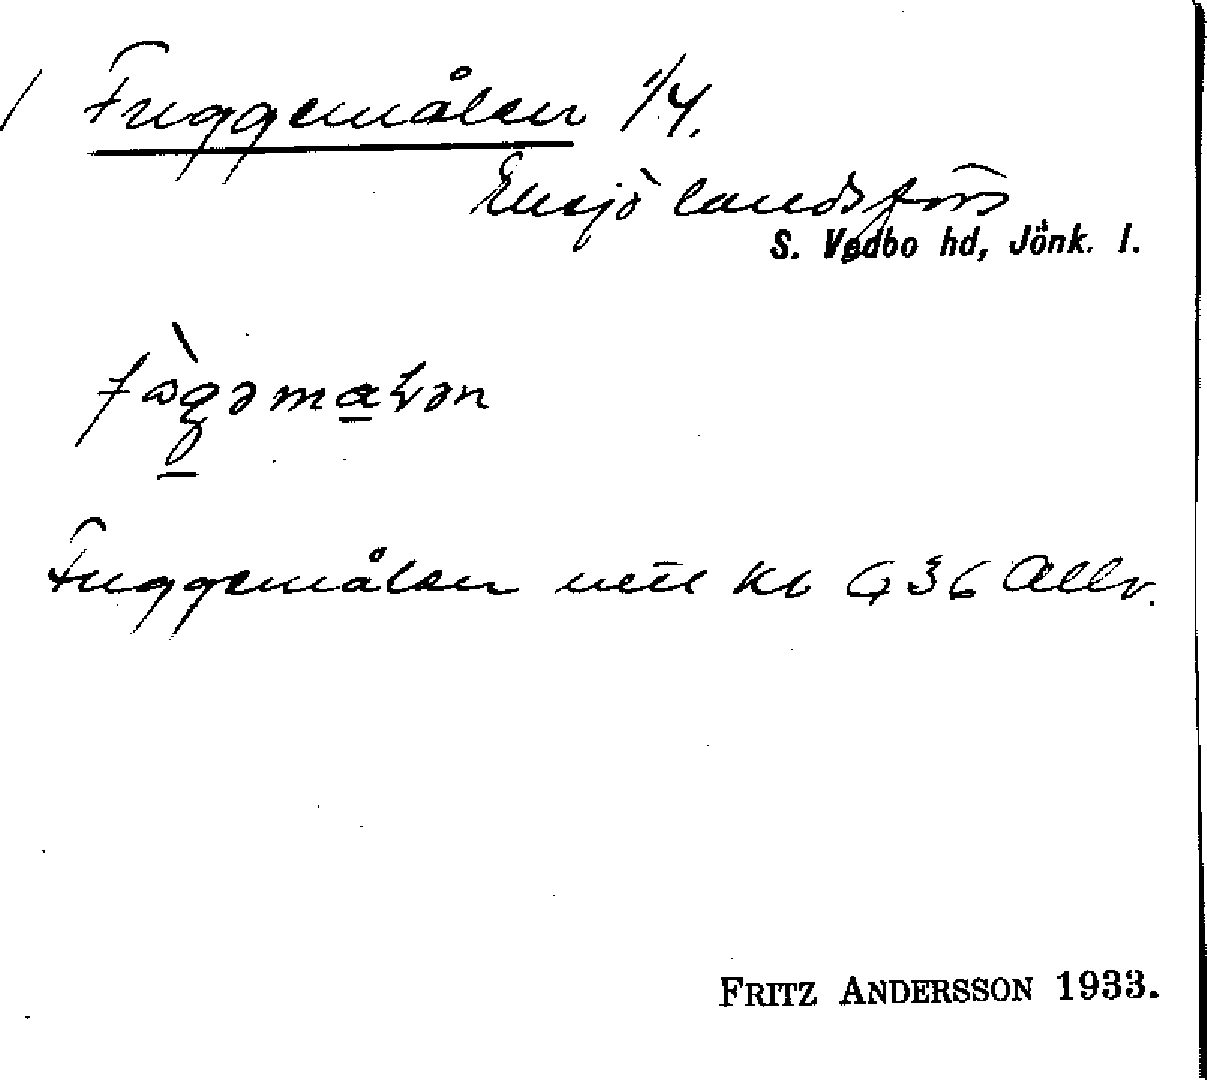 Fuggemålen 1/4.
Eksjö landsförs
S. Vedbo hd, Jönk. l.
Fuggemålen kb G36 Allv.
FRITZ ANDERSSON 1933.